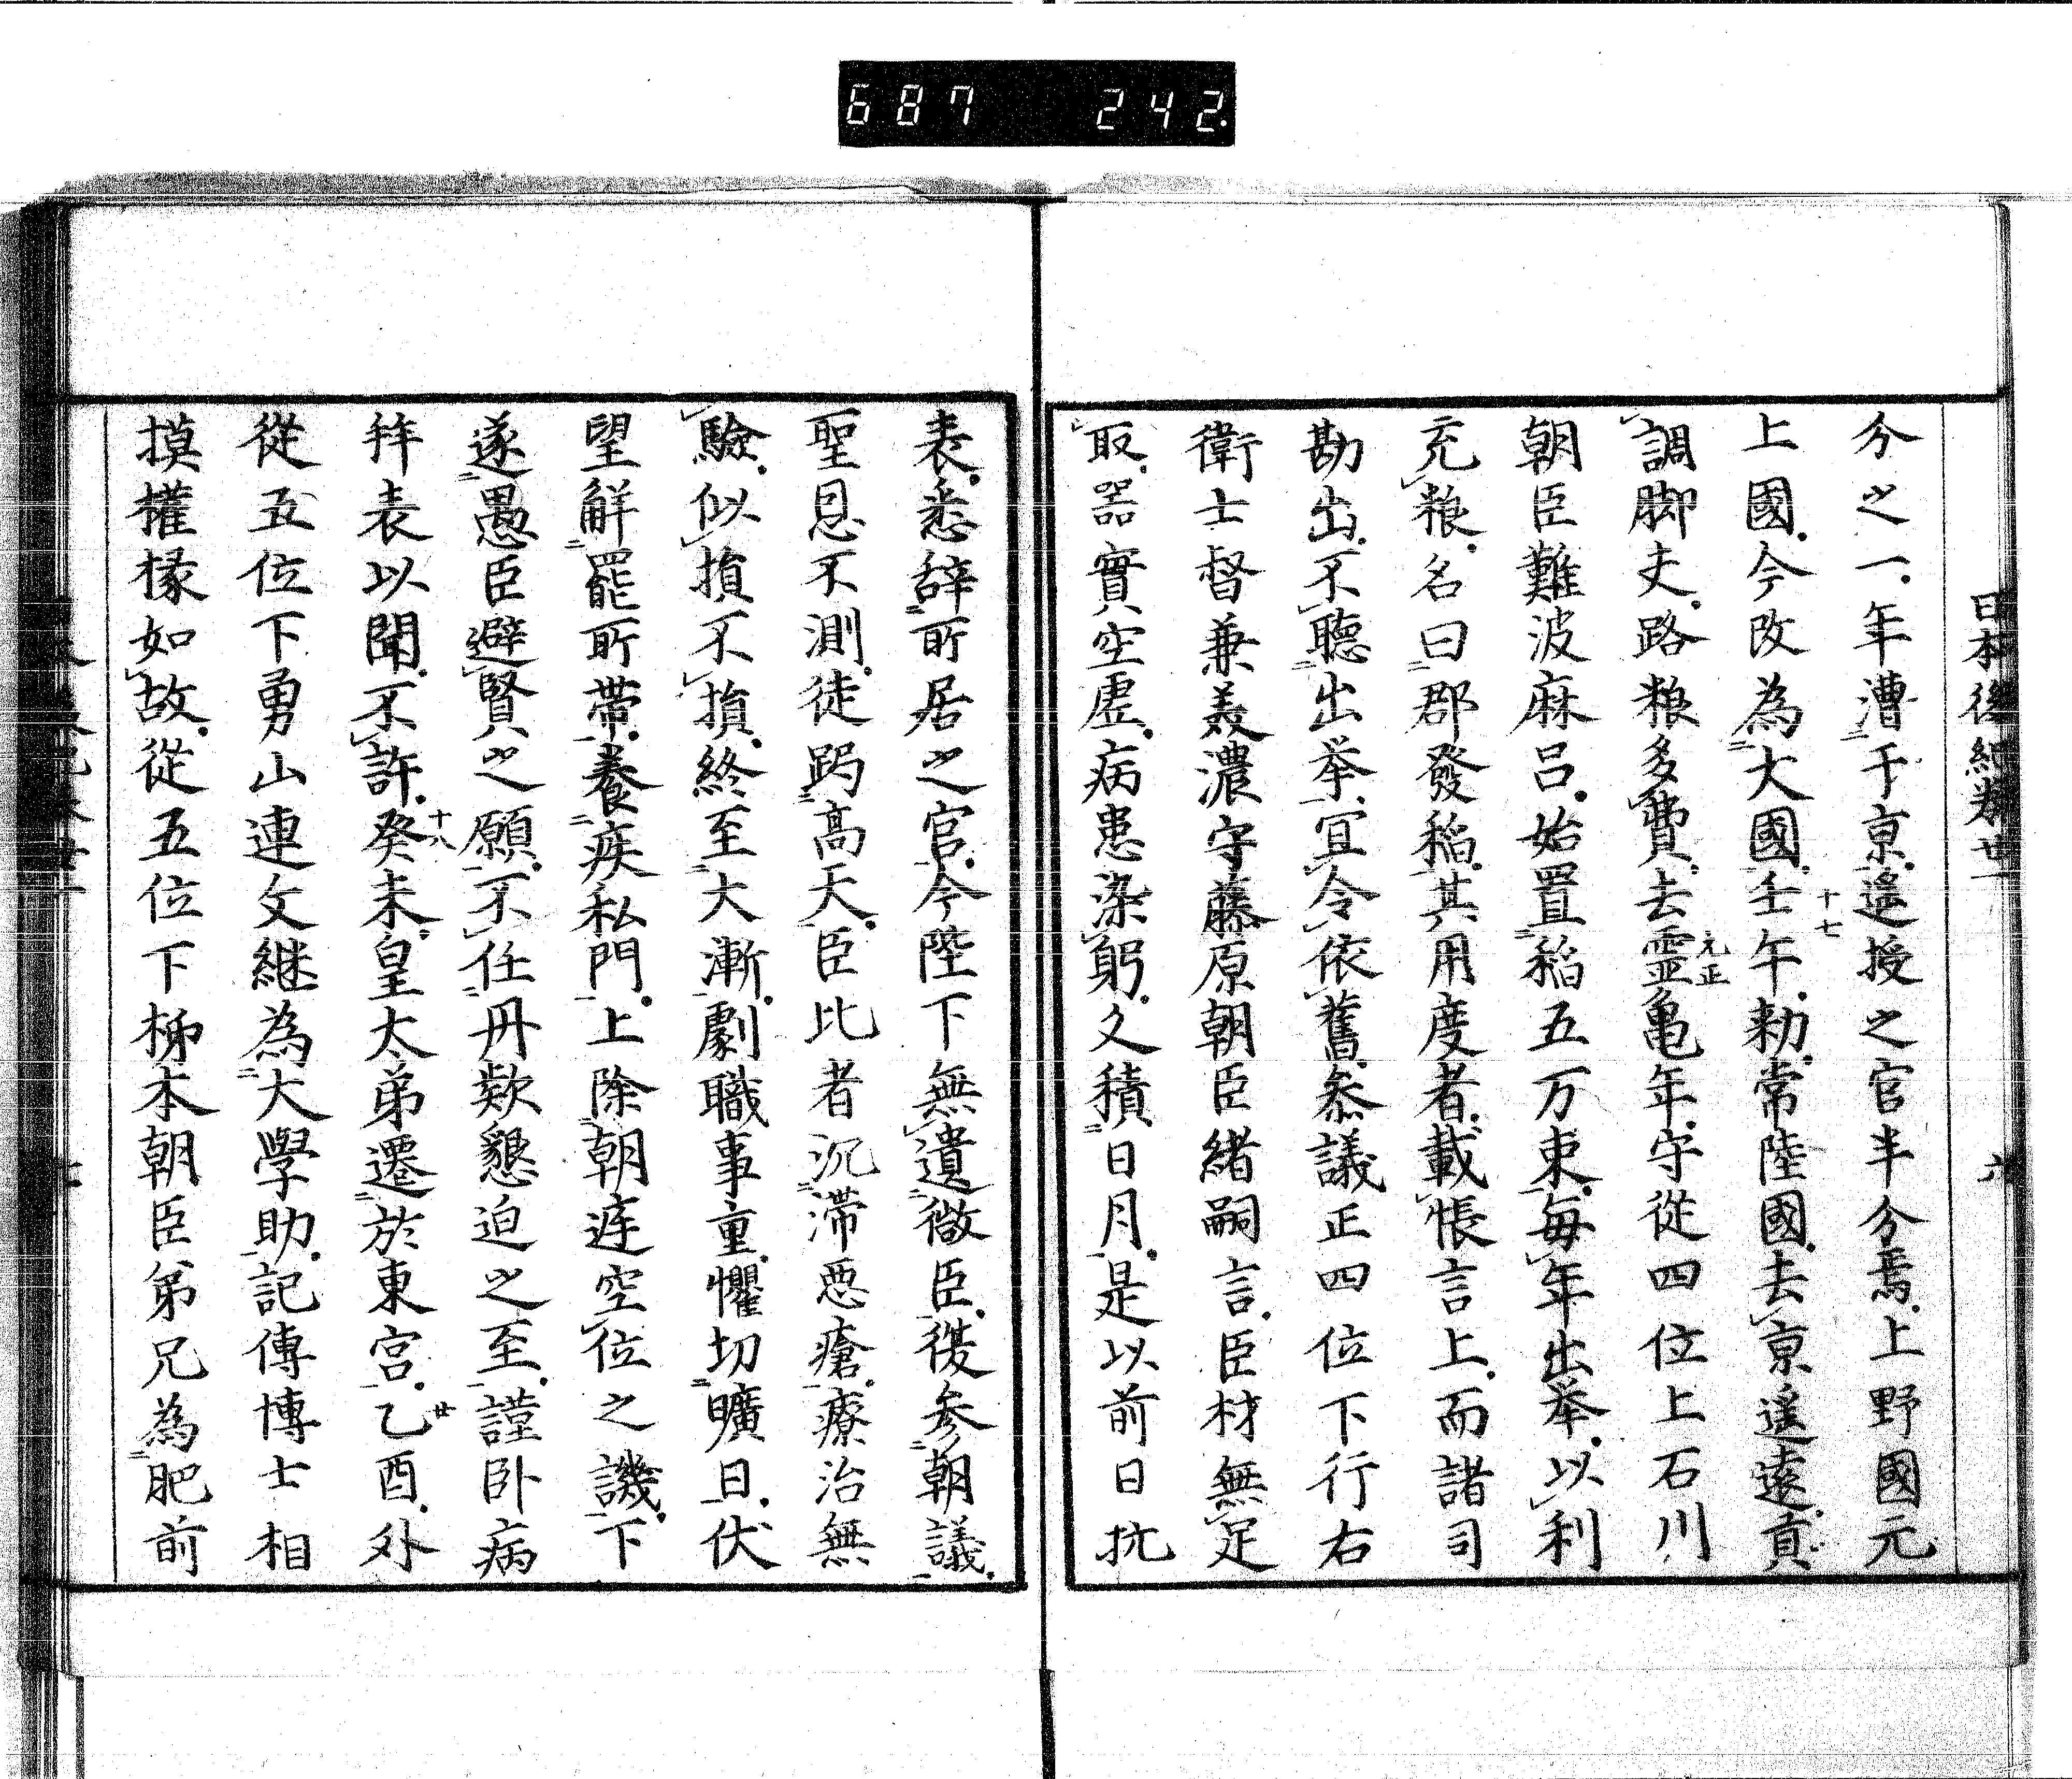 687 242
日本後紀巻廿一
六
分之一年漕于京遙授之官半分焉上野國元
上國今改為大國壬午勅常陸國去京遥遠貢
十七
調脚夫路粮多費去霊亀年守従四位上石川
元正
朝臣難波麻呂始置稲五万束毎年出挙以利
充粮名曰郡發稲其用度者載帳言上而諸司
勘出不聴出挙宜令依舊叅議正四位下行右
衛士督兼美濃守藤原朝臣緒嗣言臣材無足
取器實空虚病患染躬久積日月是以前日抗
表悉辞所居之官今陛下無遺微臣復参朝議
聖恩不測徒跼高天臣比者沉滞悪瘡療治無
驗似損不損終至大漸劇職事重懼切曠日伏
望解罷所帯養疾私門上除朝廷空位之譏下
遂愚臣避賢之願不任丹欵懇迫之至謹卧病
拝表以聞不許癸未皇太弟遷於東宮乙酉外
十八
廿
従五位下勇山連文継為大學助記傳博士相
摸權掾如故従五位下栁本朝臣弟兄為肥前